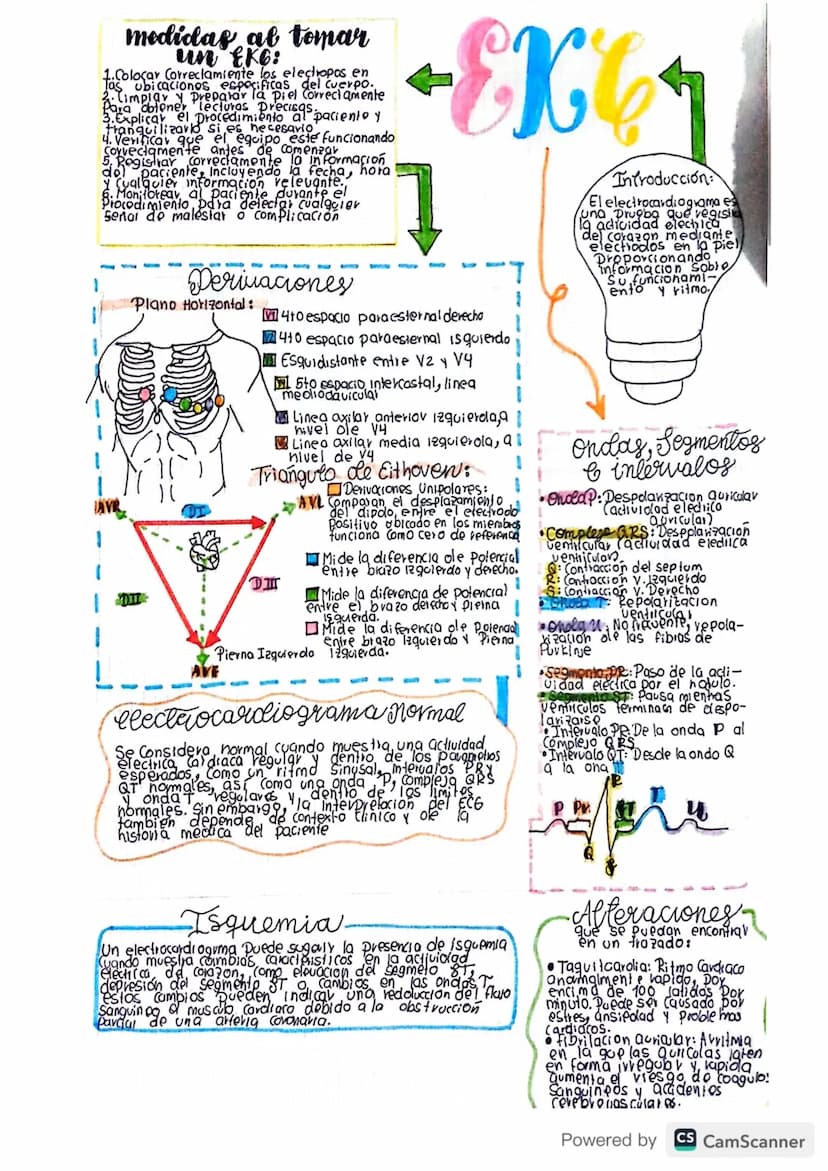 EKG
medidas al tomar
un EKG:
1. Colocar correctamente los electropos en
las ubicaciones especificas del cuerpo.
2. Limpiar y preparar la piel correctamente
para obtener lecturas precisas.
3. Explicar el procedimiento al paciente y
tranquilizarlo si es necesario
4. Verificar que el equipo este funcionando
correctamente antes de comenzar
5. Registrar correctamente la información
del paciente, incluyendo la fecha, hora
y cualquier información relevante.
6. Monitorear al paciente durante el
procedimiento para detectar cualquier
señal de malestar o complicación
Introducción:
El electrocardiograma es
una prueba que registra
la actividad electrica
del corazon mediante
electrodos en la piel
Proporcionando
informacion sobre
su funcionami-
ento y ritmo.
Derivaciones
Plano Horizontal:
V1 4to espacio paraesternal derecho
V2 4to espacio paraesternal isquierdo
V3 Esquidistante entre V2 y V4
V4 5to espacio intercostal, linea
medioclavicular
V5 Linea axilar anterior izquierda, a
nivel de V4
V6 Linea axilar media izquierda, a
nivel de V4
Triangulo de Eithoven:
Derivaciones Unipolares:
Comparan el desplazamiento
del dipolo, entre el electrodo
positivo ubicado en los miembros
funciona como cero de referencia
Mide la diferencia de potencial
entre brazo izquierdo y derecho.
Mide la diferencia de potencial
entre el brazo derecho y pierna
isquierda.
Mide la diferencia de potencial
entre brazo izquierdo y pierna
izquierda.
AVR
DI
AVL
DII
DIII
Pierna Izquierdo
AVF
Ondas, Segmentos
e intervalos
• Onda P: Despolarizacion auricular
(actividad electrica
auricular)
• Complejo QRS: Despolarización
ventricular (actividad electrica
ventricular)
Q: Contraccion del septum
R: Contraccion v. Izquierdo
S: Contraccion v. Derecho
• Onda T: Repolarizacion
ventricular
• Onda U: No frecuente, repola-
rización de las fibras de
Purkinje
• Segmento PR: Paso de la acti-
vidad electica por el nodulo.
• Segmento ST: Pausa mientras
ventriculos terminan de despo-
larizarse
• Intervalo PR: De la onda P al
complejo QRS
• Intervalo QT: Desde la onda Q
a la ona T
P PR Q R S ST T U
Electrocardiograma Normal
Se considera normal cuando muestra una actividad
electrica cardiaca regular y dentro de los parametros
esperados, como un ritmo sinusal, intervalos PR y
QT normales, así como una onda P, complejo QRS
y onda T regulares y dentro de los limites
normales. Sin embargo, la interpretacion del ECG
tambien depende de contexto clinico y de la
historia medica del paciente
Isquemia
Un electrocardiograma puede sugerir la presencia de isquemia
cuando muestra cambios caracteristicos en la actividad
electrica del corazon, como elevacion del segmeto ST,
depresion del segmento ST o cambios en las ondas T
estos cambios pueden indicar una reduccion del flujo
sanguineo al musculo cardiaco debido a la obstrucción
parcial de una arteria coronaria.
Alteraciones
que se puedan encontrar
en un trazado:
• Taquitcardia: Ritmo Cardiaco
anormalmente rapido, por
encima de 100 latidos por
minuto. Puede ser causado por
estres, ansiedad y problemas
cardiacos.
• Fibrilacion auricular: Arritmia
en la que las auriculas laten
en forma irregular y rapida
aumenta el riesgo de coagulos
sanguineos y accidentes
cerebrovasculares.
Powered by CS CamScanner